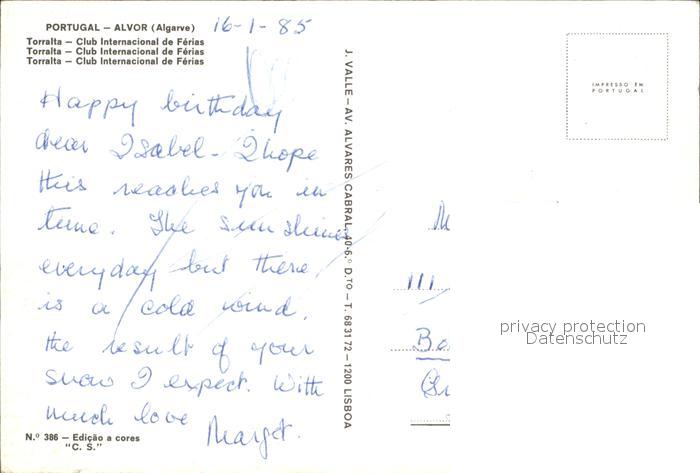 PORTUGAL – ALVOR (Algarve)
Torralta – Club Internacional de Férias
Torralta – Club Internacional de Férias
Torralta – Club Internacional de Férias
16-1-85
Happy birthday
dear Isabel - I hope
this reaches you in
time. The sun shines
everyday but there
is a cold wind,
the result of your
snow I expect. With
much love
Margot.
N.º 386 – Edição a cores
"C. S."
J. VALLE – AV. ALVARES CABRAL, 40-6.º D.TO – T. 683172 – 1200 LISBOA
IMPRESSO EM
PORTUGAL
111
privacy protection
Datenschutz